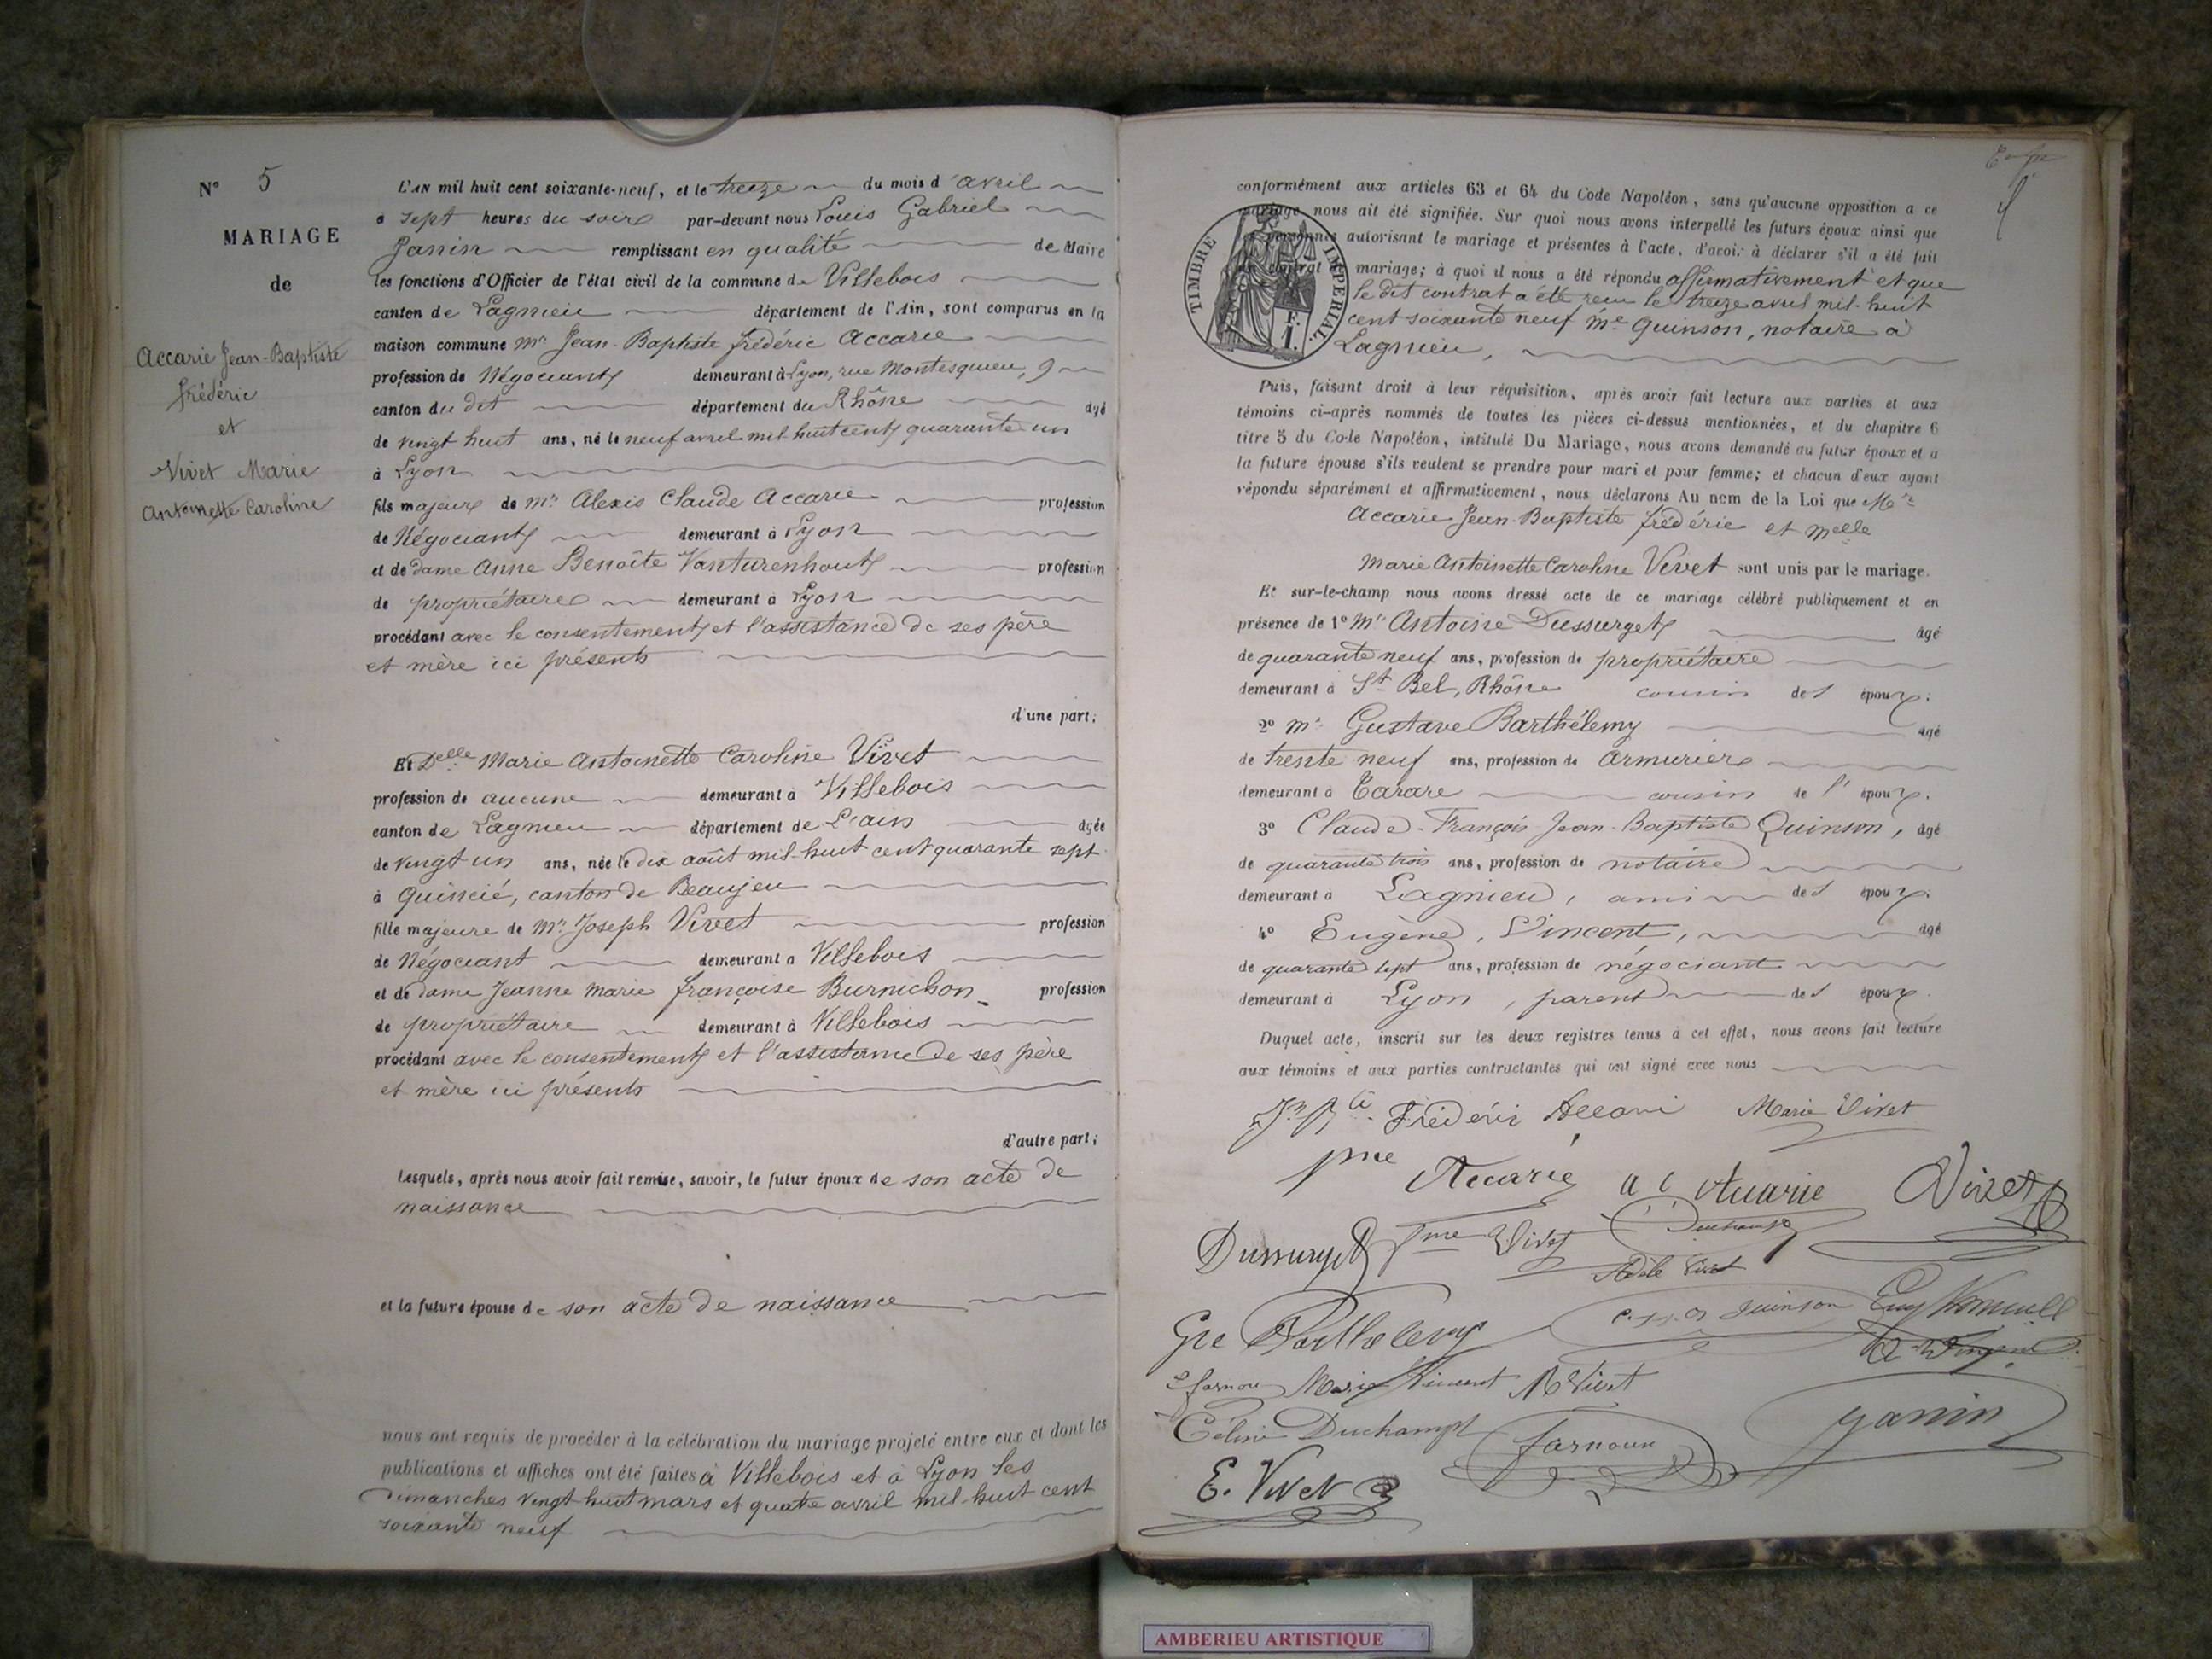 N° 5
MARIAGE
de
Accarie Jean-Baptiste
frédéric
et
Vivet Marie
Antoinette Caroline
L'AN mil huit cent soixante-neuf, et le treize du mois d'avril
à sept heures du soir par-devant nous Louis Gabriel
Janin remplissant en qualité de Maire
les fonctions d'Officier de l'état civil de la commune de Villebois
canton de Lagnieu département de l'Ain, sont comparus en la
maison commune Mr Jean-Baptiste frédéric Accarie
profession de Négociant demeurant à Lyon, rue Montesquieu, 9
canton du dit département du Rhône âgé
de vingt huit ans, né le neuf avril mil huit cent quarante un
à Lyon
fils majeur de Mr Alexis Claude Accarie profession
de Négociant demeurant à Lyon
et de dame Anne Benoîte Vanturenhout profession
de propriétaire demeurant à Lyon
procédant avec le consentement et l'assistance de ses père
et mère ici présents
d'une part;
Et Delle Marie Antoinette Caroline Vivet
profession de aucune demeurant à Villebois
canton de Lagnieu département de L'ain âgée
de vingt un ans, née le dix août mil-huit cent quarante sept
à Quincié, canton de Beaujeu
fille majeure de Mr Joseph Vivet profession
de Négociant demeurant à Villebois
et de dame Jeanne Marie françoise Burnichon profession
de propriétaire demeurant à Villebois
procédant avec le consentement et l'assistance de ses père
et mère ici présents
d'autre part;
Lesquels, après nous avoir fait remise, savoir, le futur époux de son acte de
naissance
et la future épouse de son acte de naissance
nous ont requis de procéder à la célébration du mariage projeté entre eux et dont les
publications et affiches ont été faites à Villebois et à Lyon les
dimanches vingt-huit mars et quatre avril mil-huit cent
soixante neuf
conformément aux articles 63 et 64 du Code Napoléon, sans qu'aucune opposition a ce
mariage nous ait été signifiée. Sur quoi nous avons interpellé les futurs époux ainsi que
personnes autorisant le mariage et présentes à l'acte, d'avoir à déclarer s'il a été fait
contrat de mariage; à quoi il nous a été répondu affirmativement et que
le dit contrat a été reçu le treize avril mil-huit
cent soixante neuf Me Quinson, notaire à
Lagnieu,
TIMBRE IMPÉRIAL
1 F.
Puis, faisant droit à leur réquisition, après avoir fait lecture aux parties et aux
témoins ci-après nommés de toutes les pièces ci-dessus mentionnées, et du chapitre 6
titre 5 du Code Napoléon, intitulé Du Mariage, nous avons demandé au futur époux et a
la future épouse s'ils veulent se prendre pour mari et pour femme; et chacun d'eux ayant
répondu séparément et affirmativement, nous déclarons Au nom de la Loi que Mr
Accarie Jean-Baptiste frédéric et Melle
Marie Antoinette Caroline Vivet sont unis par le mariage.
Et sur-le-champ nous avons dressé acte de ce mariage célébré publiquement et en
présence de 1° Mr Antoine Dussurget âgé
de quarante neuf ans, profession de propriétaire
demeurant à St Bel, Rhône cousin des époux.
2° Mr Gustave Barthélemy âgé
de trente neuf ans, profession de armurier
demeurant à Tarare cousin de l'époux.
3° Claude-François Jean-Baptiste Quinson, âgé
de quarante trois ans, profession de notaire
demeurant à Lagnieu, ami des époux.
4° Eugène, Vincent, âgé
de quarante sept ans, profession de négociant
demeurant à Lyon, parent des époux.
Duquel acte, inscrit sur les deux registres tenus à cet effet, nous avons fait lecture
aux témoins et aux parties contractantes qui ont signé avec nous
Jn Bte Frédéric Accarie Marie Vivet
fme Accarie A C Accarie Vivet
Dussurget fme Vivet Duchamp
Adèle Vivet
Gve Barthélemy Quinson Eug Vincent
Marie Vincent Vivet
Céline Duchamp farnoux Janin
E. Vivet
AMBERIEU ARTISTIQUE